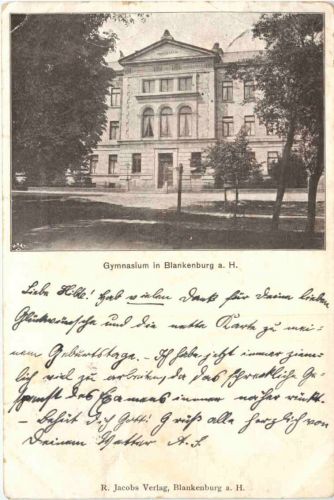 Gymnasium in Blankenburg a. H.
Liebe Hilde! Hab vielen Dank für Deine lieben
Glückwünsche und die nette Karte zu mei-
nem Geburtstage. – Ich habe jetzt immer ziem-
lich viel zu arbeiten, da das schreckliche Ge-
spenst des Examens immer näher rückt.
– Behüt Dich Gott! Grüß alle herzlich von
Deinem Vetter A. S.
R. Jacobs Verlag, Blankenburg a. H.